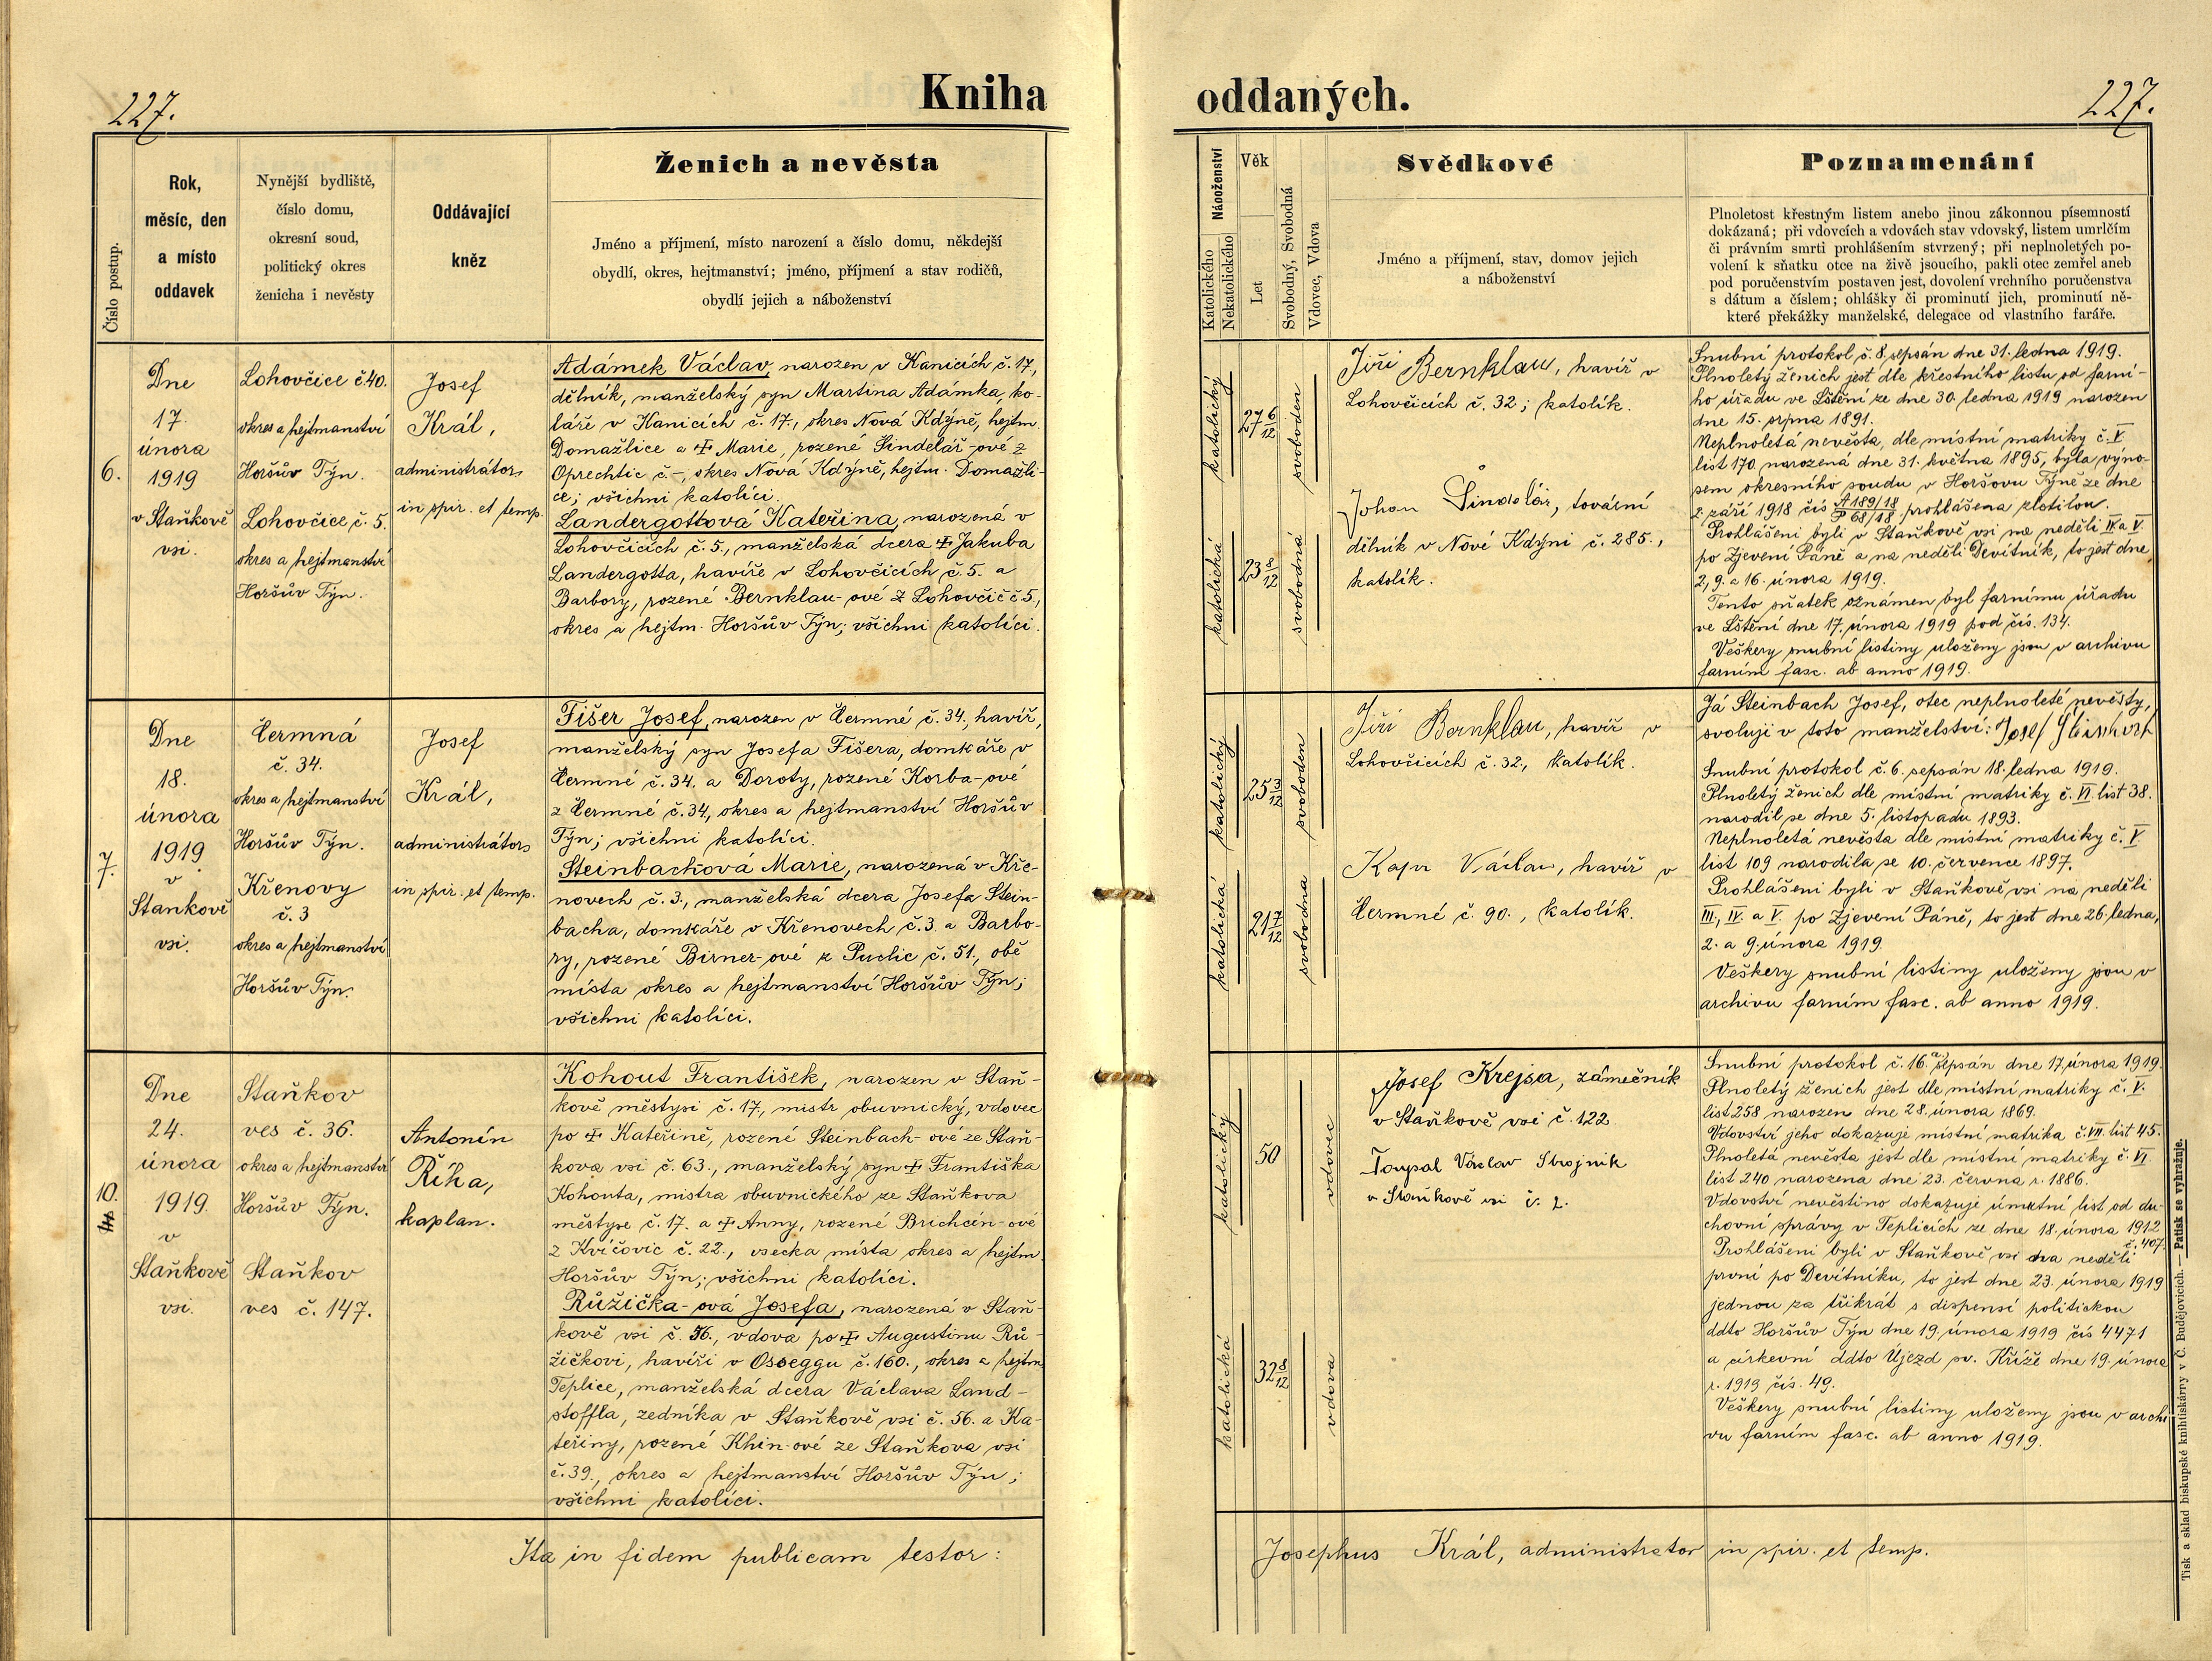 227.
Kniha oddaných.
227.
Číslo postup.
Rok,
měsíc, den
a místo
oddavek
Nynější bydliště,
číslo domu,
okresní soud,
politický okres
ženicha i nevěsty
Oddávající
kněz
Ženich a nevěsta
Jméno a příjmení, místo narození a číslo domu, někdejší
obydlí, okres, hejtmanství; jméno, příjmení a stav rodičů,
obydlí jejich a náboženství
Náboženství
Katolického
Nekatolického
Věk
Let
Svobodný, Svobodná
Vdovec, Vdova
Svědkové
Jméno a příjmení, stav, domov jejich
a náboženství
Poznamenání
Plnoletost křestným listem anebo jinou zákonnou písemností
dokázaná; při vdovcích a vdovách stav vdovský, listem umrlčím
či právním smrti prohlášením stvrzený; při neplnoletých po-
volení k sňatku otce na živě jsoucího, pakli otec zemřel aneb
pod poručenstvím postaven jest, dovolení vrchního poručenstva
s dátum a číslem; ohlášky či prominutí jich, prominutí ně-
které překážky manželské, delegace od vlastního faráře.
6.
Dne
17.
února
1919
v Staňkově
vsi.
Lohovčice č. 40.
okres a hejtmanství
Horšův Týn.
Lohovčice, č. 5.
okres a hejtmanství
Horšův Týn.
Josef
Král,
administrátor
in spir. et temp.
Adámek Václav, narozen v Kanicích č. 17,
dělník, manželský syn Martina Adámka, ko-
láře v Kanicích č. 17., okres Nová Kdýně, hejtm.
Domažlice a ☩ Marie, rozené Šindelář-ové z
Oprechtic č. -, okres Nová Kdýně, hejtm. Domažli-
ce; všichni katolíci.
Landergottová Kateřina, narozená v
Lohovčicích č. 5., manželská dcera ☩ Jakuba
Landergotta, havíře v Lohovčicích č. 5. a
Barbory, rozené Bernklau-ové z Lohovčic č 5.,
okres a hejtm. Horšův Týn; všichni katolíci.
katolický
27 6/12
svoboden
katolická
23 8/12
svobodná
Jiří Bernklau, havíř v
Lohovčicích č. 32; katolík.
Johan Šindelář, tovární
dělník v Nové Kdýni č. 285.,
katolík.
Snubní protokol č. 8. sepsán dne 31. ledna 1919.
Plnoletý ženich jest dle křestního listu od farní-
ho úřadu ve Lštění ze dne 30. ledna 1919 narozen
dne 15. srpna 1891.
Neplnoletá nevěsta, dle místní matriky č. V
list 170. narozená dne 31. května 1895, byla výno-
sem okresního soudu v Horšovu Týně ze dne
2. září 1918 čís A 189/18 P 68/18 prohlášena zletilou.
Prohlášeni byli v Staňkově vsi na neděli IV. a V.
po Zjevení Páně a na neděli Devítník, to jest dne
2., 9. a 16. února 1919.
Tento sňatek oznámen byl farnímu úřadu
ve Lštění dne 17. února 1919 pod čís. 134.
Veškery snubní listiny uloženy jsou v archivu
farním fasc. ab anno 1919.
7.
Dne
18.
února
1919.
v
Stankově
vsi.
Čermná
č. 34.
okres a hejtmanství
Horšův Týn.
Křenovy
č. 3
okres a hejtmanství
Horšův Týn.
Josef
Král,
administrátor
in spir. et temp.
Fišer Josef, narozen v Čermné č. 34., havíř,
manželský syn Josefa Fišera, domkáře v
Čermné č. 34. a Doroty, rozené Korba-ové
z Čermné č. 34, okres a hejtmanství Horšův
Týn; všichni katolíci.
Steinbachová Marie, narozená v Kře-
novech č. 3., manželská dcera Josefa Stein-
bacha, domkáře v Křenovech č. 3. a Barbo-
ry, rozené Birner-ové z Puclic č. 51., obě
místa okres a hejtmanství Horšův Týn;
všichni katolíci.
katolický
25 3/12
svoboden
katolická
21 7/12
svobodna
Jiří Bernklau, havíř v
Lohovčicích č. 32, katolík.
Kapr Václav, havíř v
Čermné č. 90., katolík.
Já Steinbach Josef, otec neplnoleté nevěsty,
svoluji v toto manželství: Josef Steinbach
Snubní protokol č. 6. sepsán 18. ledna 1919.
Plnoletý ženich dle místní matriky č. VI list 38.
narodil se dne 5. listopadu 1893.
Neplnoletá nevěsta dle místní matriky č. V.
list 109 narodila se 10. července 1897.
Prohlášeni byli v Staňkově vsi na neděli
III., IV. a V. po Zjevení Páně, to jest dne 26. ledna,
2. a 9. února 1919.
Veškery snubní listiny uloženy jsou v
archivu farním fasc. ab anno 1919.
10.
Dne
24.
února
1919.
v
Staňkově
vsi.
Staňkov
ves č. 36.
okres a hejtmanství
Horšův Týn.
Staňkov
ves č. 147.
Antonín
Říha,
kaplan.
Kohout František, narozen v Staň-
kově městysi č. 17., mistr obuvnický, vdovec
po ☩ Kateřině, rozené Steinbach-ové ze Staň-
kova vsi č. 63., manželský syn ☩ Františka
Kohouta, mistra obuvnického ze Staňkova
městyse č. 17. a ☩ Anny, rozené Brichcín-ové
z Kvíčovic č. 22., vsecka místa okres a hejtm.
Horšův Týn; všichni katolíci.
Růžička-ová Josefa, narozená v Staň-
kově vsi č. 56., vdova po ☩ Augustinu Rů-
žičkovi, havíři v Osseggu č. 160., okres a hejtm
Teplice, manželská dcera Václava Land-
stoffla, zedníka v Staňkově vsi č. 56. a Ka-
teřiny, rozené Khin-ové ze Staňkova vsi
č. 39., okres a hejtmanství Horšův Týn;
všichni katolíci.
katolický
50
vdovec
katolická
32 8/12
vdova
Josef Krejsa, zámečník
v Staňkově vsi č. 122
Toupal Václav Strojník
v Staňkově vsi č. 2.
Snubní protokol č. 16.a sepsán dne 17. února 1919.
Plnoletý ženich jest dle místní matriky č. V.
list 258 narozen dne 28. února 1869.
Vdovství jeho dokazuje místní matrika č. VII. list 45.
Plnoletá nevěsta jest dle místní matriky č. VI.
list 240 narozena dne 23. června r. 1886.
Vdovství nevěstino dokazuje úmrtní list od du-
chovní správy v Teplicích ze dne 18. února 1912.
č. 407.
Prohlášeni byli v Staňkově vsi dva neděli
první po Devítníku, to jest dne 23. února 1919
jednou za třikrát s dispensí politickou
ddto Horšův Týn dne 19. února 1919 čís 4471
a církevní ddto Újezd sv. Kříže dne 19. února
r. 1919 čís. 49.
Veškery snubní listiny uloženy jsou v archi
vu farním fasc. ab anno 1919.
Ita in fidem publicam testor:
Josephus Král, administrator in spir. et temp.
Tisk a sklad biskupské knihtiskárny v Č. Budějovicích. — Patisk se vyhražuje.